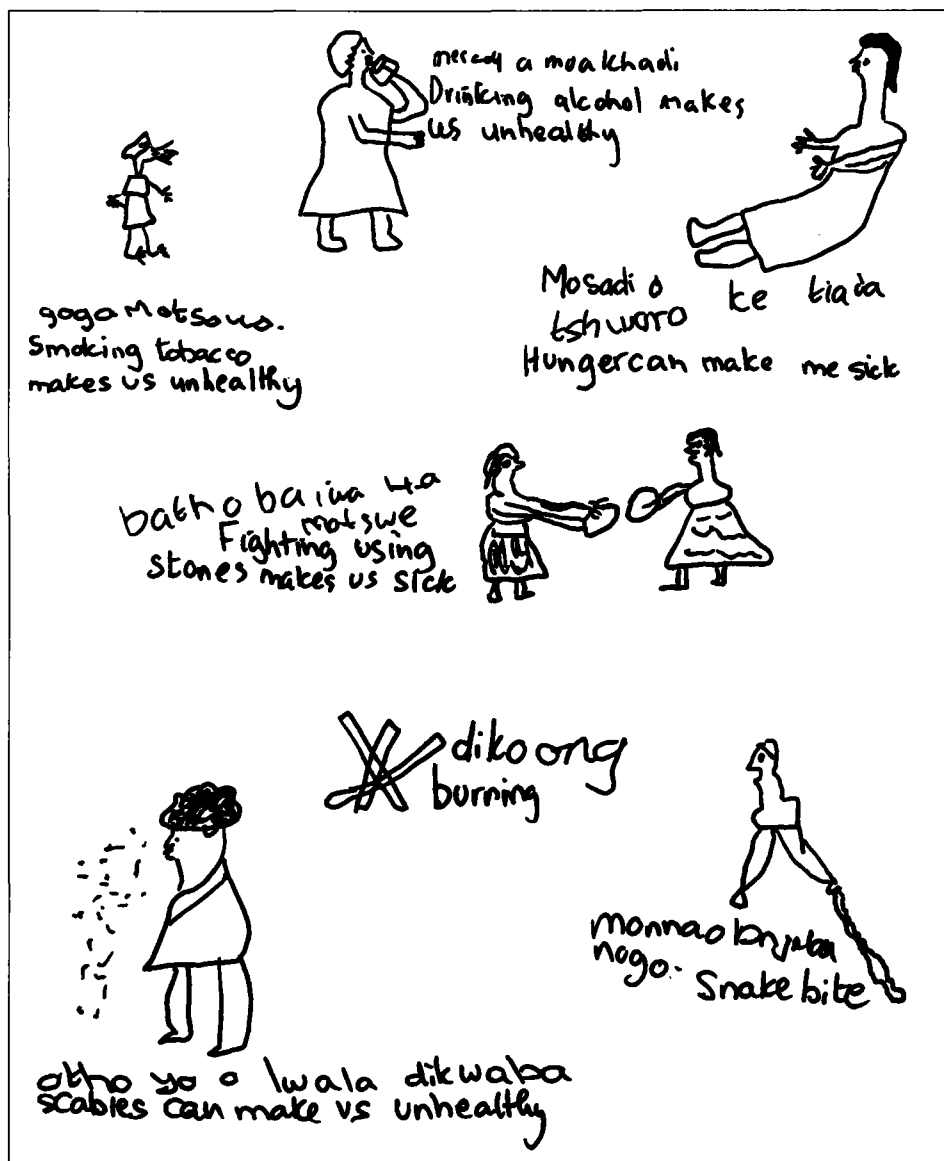 a moakhadi
Drinking alcohol makes
us unhealthy
goga Motsoko.
Smoking tobacco
makes us unhealthy
Mosadi o ke
tshwaro
Hunger can make me sick
batho ba iwa
matswe
Fighting using
stones makes us sick
dikoong
burning
monna o
nogo.
Snake bite
otho yo o lwala dikwaba
scabies can make us unhealthy